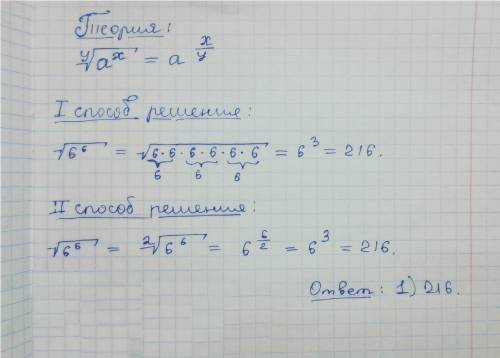 Теория:
ʸ√aˣ = a^(x/y)
I способ решения:
√6⁶ = √6·6·6·6·6·6 = 6³ = 216.
6 6 6
II способ решения:
√6⁶ = ²√6⁶ = 6^(6/2) = 6³ = 216.
Ответ: 1) 216.